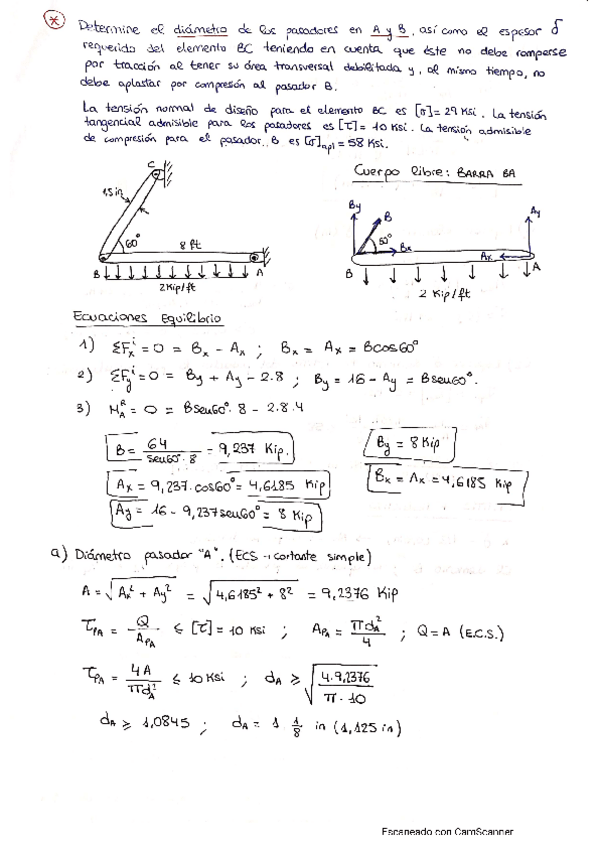 * Determine el diámetro de los pasadores en A y B, así como el espesor δ
requerido del elemento BC teniendo en cuenta que éste no debe romperse
por tracción al tener su área transversal debilitada y, al mismo tiempo, no
debe aplastar por compresión al pasador B.
La tensión normal de diseño para el elemento BC es [σ]= 29 Ksi. La tensión
tangencial admisible para los pasadores es [τ]= 10 Ksi. La tensión admisible
de compresión para el pasador B es [σ]apl = 58 Ksi.
Cuerpo libre: BARRA BA
C
1.5 in
60°
8 ft
B
A
2 Kip/ft
By
B
60°
Bx
Ay
Ax
B
A
2 Kip/ft
Ecuaciones Equilibrio
1) ΣFxⁱ = 0 = Bx - Ax ; Bx = Ax = Bcos60°
2) ΣFyⁱ = 0 = By + Ay - 2.8 ; By = 16 - Ay = Bseu60°.
3) M_A^R = 0 = Bseu60°. 8 - 2.8.4
B = 64 / seu60°.8 = 9,237 Kip.
By = 8 Kip
Ax = 9,237.cos60° = 4,6185 Kip
Bx = Ax = 4,6185 Kip
Ay = 16 - 9,237seu60° = 8 Kip
a) Diámetro pasador "A". (ECS → cortante simple)
A = √(Ax² + Ay²) = √(4,6185² + 8²) = 9,2376 Kip
τPA = Q / APA ≤ [τ] = 10 Ksi ; APA = πdA² / 4 ; Q = A (E.C.S.)
τPA = 4A / πdA² ≤ 10 Ksi ; dA ≥ √(4.9,2376 / π.10)
dA ≥ 1,0845 ; dA = 1 1/8 in (1,125 in)
Escaneado con CamScanner